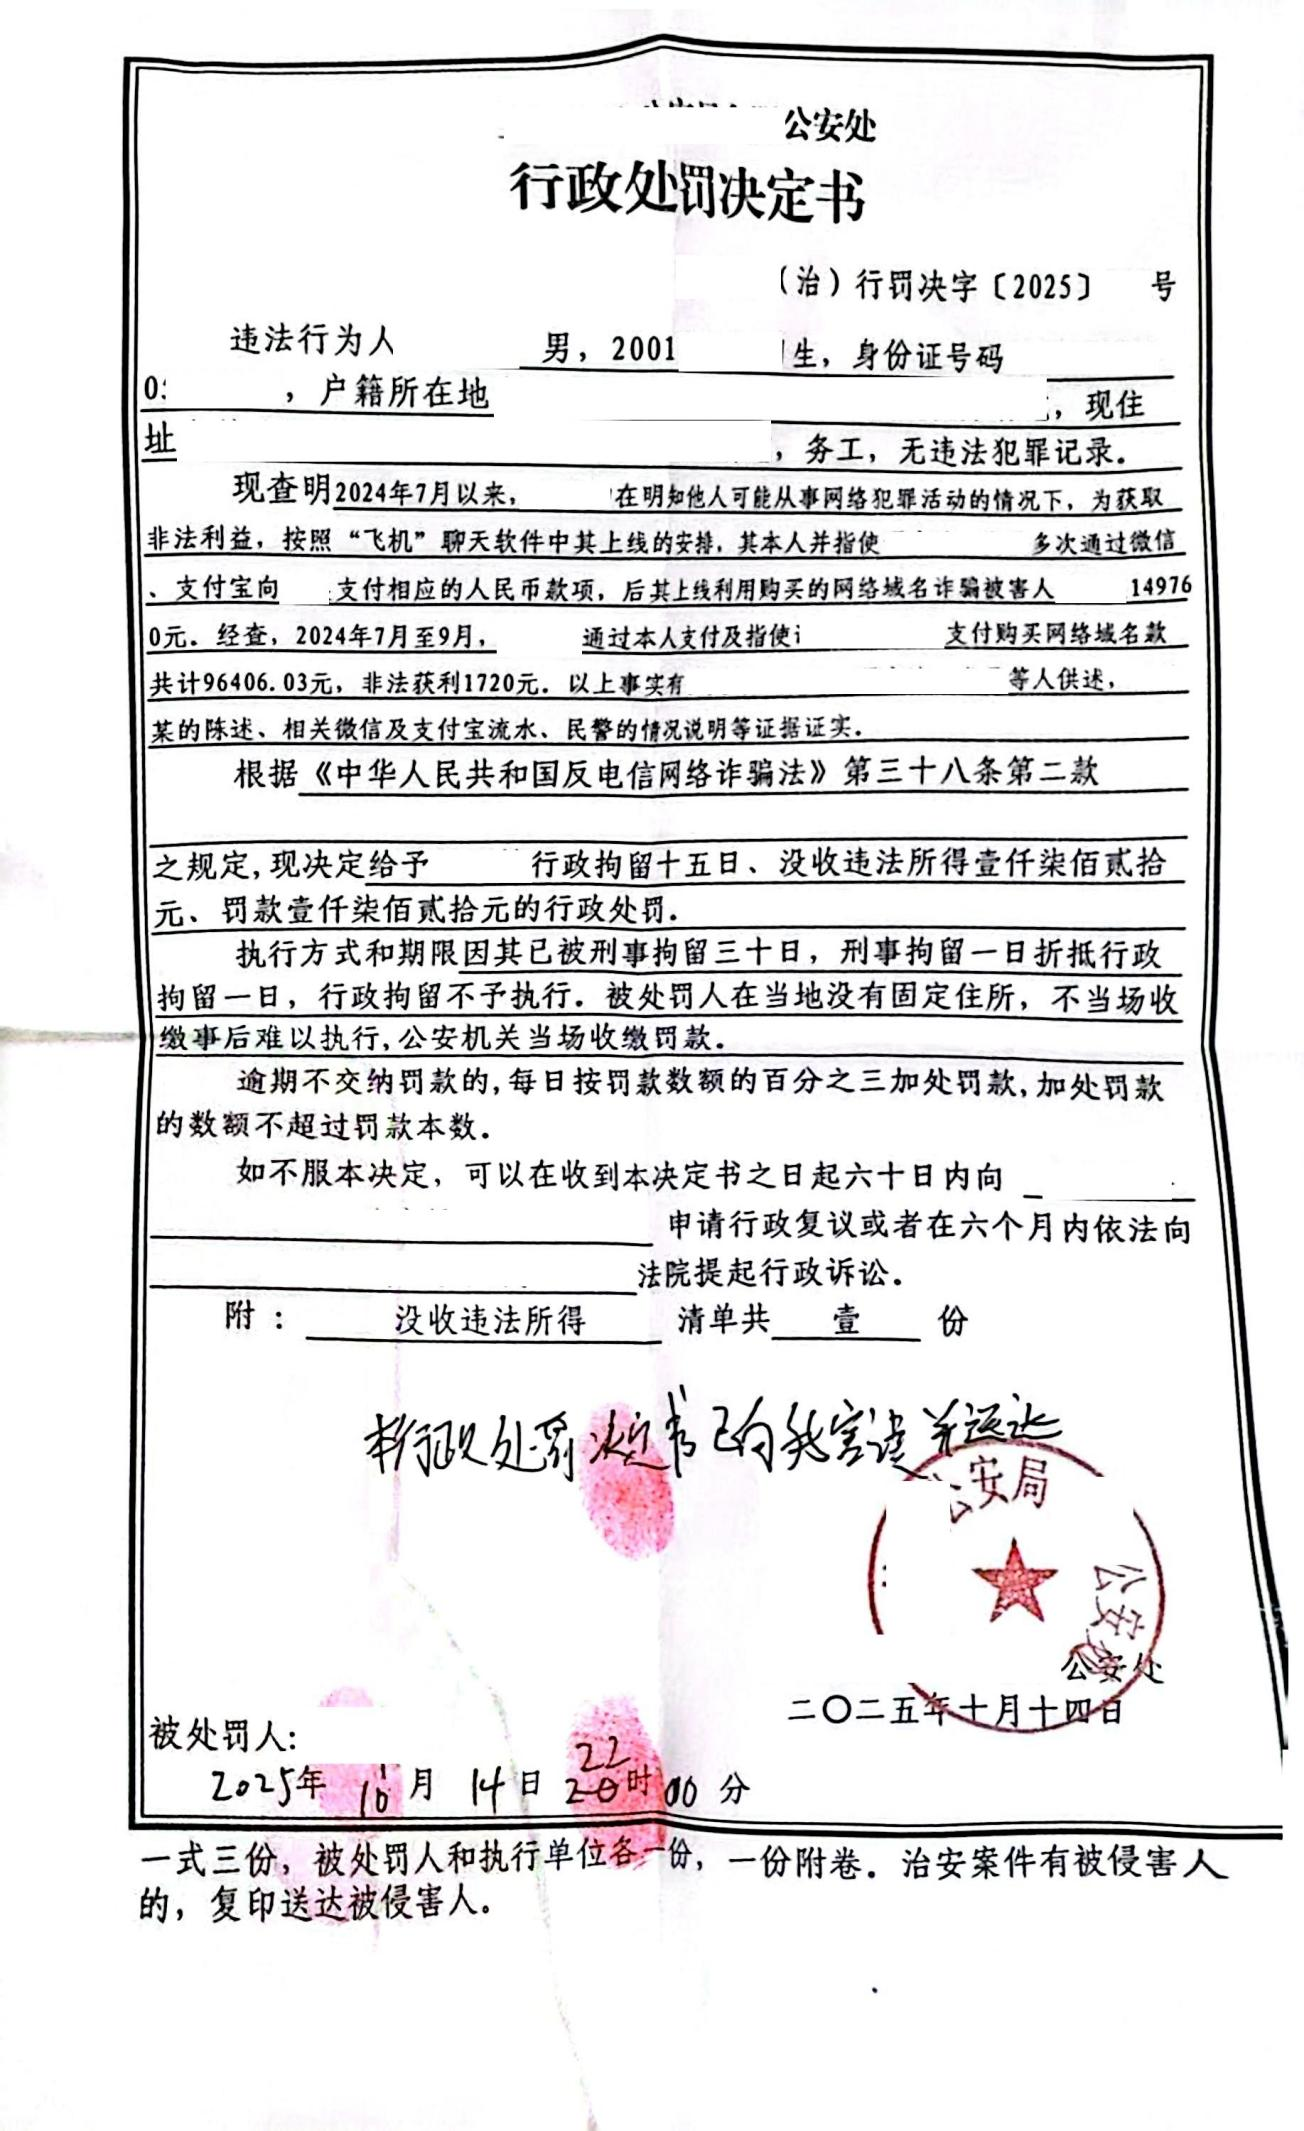 公安处
行政处罚决定书
(治)行罚决字〔2025〕 号
违法行为人 男，2001 生，身份证号码
0 ，户籍所在地 ，现住
址 ，务工，无违法犯罪记录。
现查明2024年7月以来， 在明知他人可能从事网络犯罪活动的情况下，为获取
非法利益，按照“飞机”聊天软件中其上线的安排，其本人并指使 多次通过微信
、支付宝向 支付相应的人民币款项，后其上线利用购买的网络域名诈骗被害人 14976
0元。经查，2024年7月至9月， 通过本人支付及指使 支付购买网络域名款
共计96406.03元，非法获利1720元。以上事实有 等人供述，
某的陈述、相关微信及支付宝流水、民警的情况说明等证据证实。
根据《中华人民共和国反电信网络诈骗法》第三十八条第二款
之规定，现决定给予 行政拘留十五日、没收违法所得壹仟柒佰贰拾
元、罚款壹仟柒佰贰拾元的行政处罚。
执行方式和期限因其已被刑事拘留三十日，刑事拘留一日折抵行政
拘留一日，行政拘留不予执行。被处罚人在当地没有固定住所，不当场收
缴事后难以执行，公安机关当场收缴罚款。
逾期不交纳罚款的，每日按罚款数额的百分之三加处罚款，加处罚款
的数额不超过罚款本数。
如不服本决定，可以在收到本决定书之日起六十日内向
申请行政复议或者在六个月内依法向
法院提起行政诉讼。
附： 没收违法所得 清单共 壹 份
本行政处罚决定书已向我宣读并送达
公安局
公安处
公安处
二〇二五年十月十四日
被处罚人：
2025年 10月 14日 22时00分
一式三份，被处罚人和执行单位各一份，一份附卷。治安案件有被侵害人
的，复印送达被侵害人。